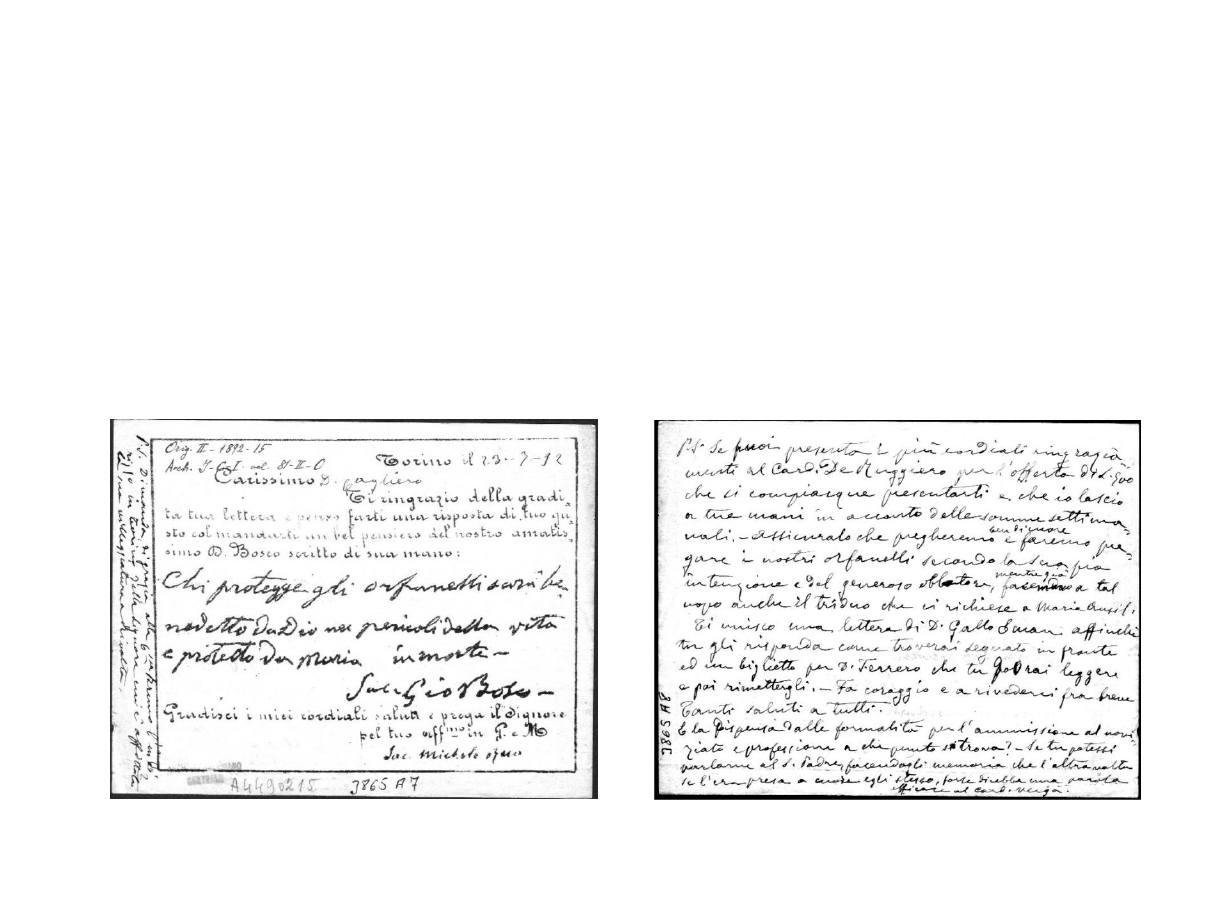 Orig. II - 1892 - 15
Arch.
Torino il 23-7-92
Carissimo D. Cagliero
Ti ringrazio della gradi-
ta tua lettera e penso farti una risposta di tuo gu-
sto col mandarti un bel pensiero del nostro amatis-
simo D. Bosco scritto di sua mano:
Chi protegge gli orfanelli sarà be-
nedetto da Dio nei pericoli della vita
e protetto da Maria in morte –
Sac. Gio Bosco –
Gradisci i miei cordiali saluti e prega il Signore
pel tuo aff.mo in G. e M
Sac. Michele
A4490215 3865 A7
P.S. Se puoi presenta i più cordiali ringrazia-
menti al Card. De Ruggiero per l'offerta di L.
che si compiacque presentarti e che io lascio
a tue mani in acconto delle somme settima-
nali. – Assicuralo che pregheremo e faremo pre-
ben di cuore
gare i nostri orfanelli secondo la sua pia
intenzione e del generoso oblatore, a tal
mentre già
uopo anche il triduo che si richiese a Maria Ausil.
Ti unisco una lettera di D. Gallo affinchè
tu gli risponda come troverai segnato in fronte
ed un biglietto per D. Ferrero che tu potrai leggere
e poi rimettergli. – Fa coraggio e a rivederci fra breve
Tanti saluti a tutti.
E la dispensa dalle formalità per l'ammissione al novi-
ziato e professione a che punto si trova? – Se tu potessi
parlarne al S. Padre, facendogli memoria che l'altra volta
se l'era presa a cuore egli stesso, forse direbbe una parola
efficace al Card. Verga.
3865 A8